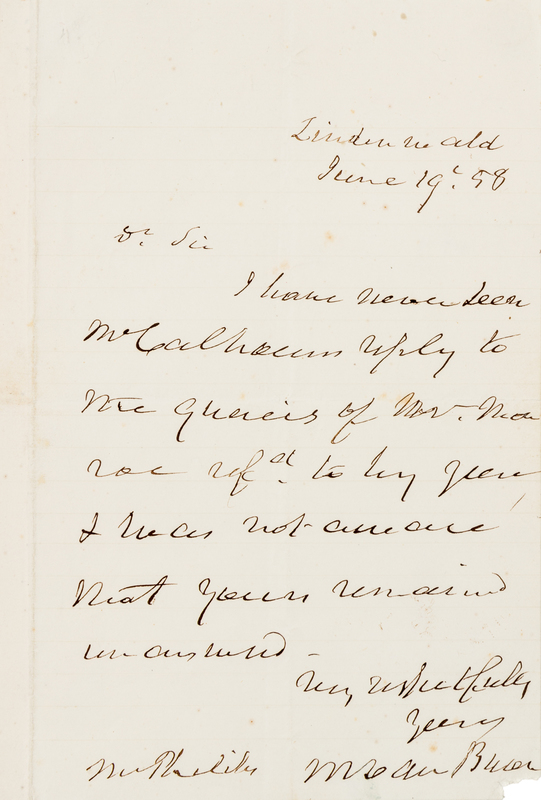 Lindenwald
June 19t. 58
Dr. Sir
I have never seen
Mr Calhouns reply to
the queries of Mr. Mon
roe refd. to by you,
& was not aware
that yours remained
unanswered -
very respectfully
yours
M Van Buren